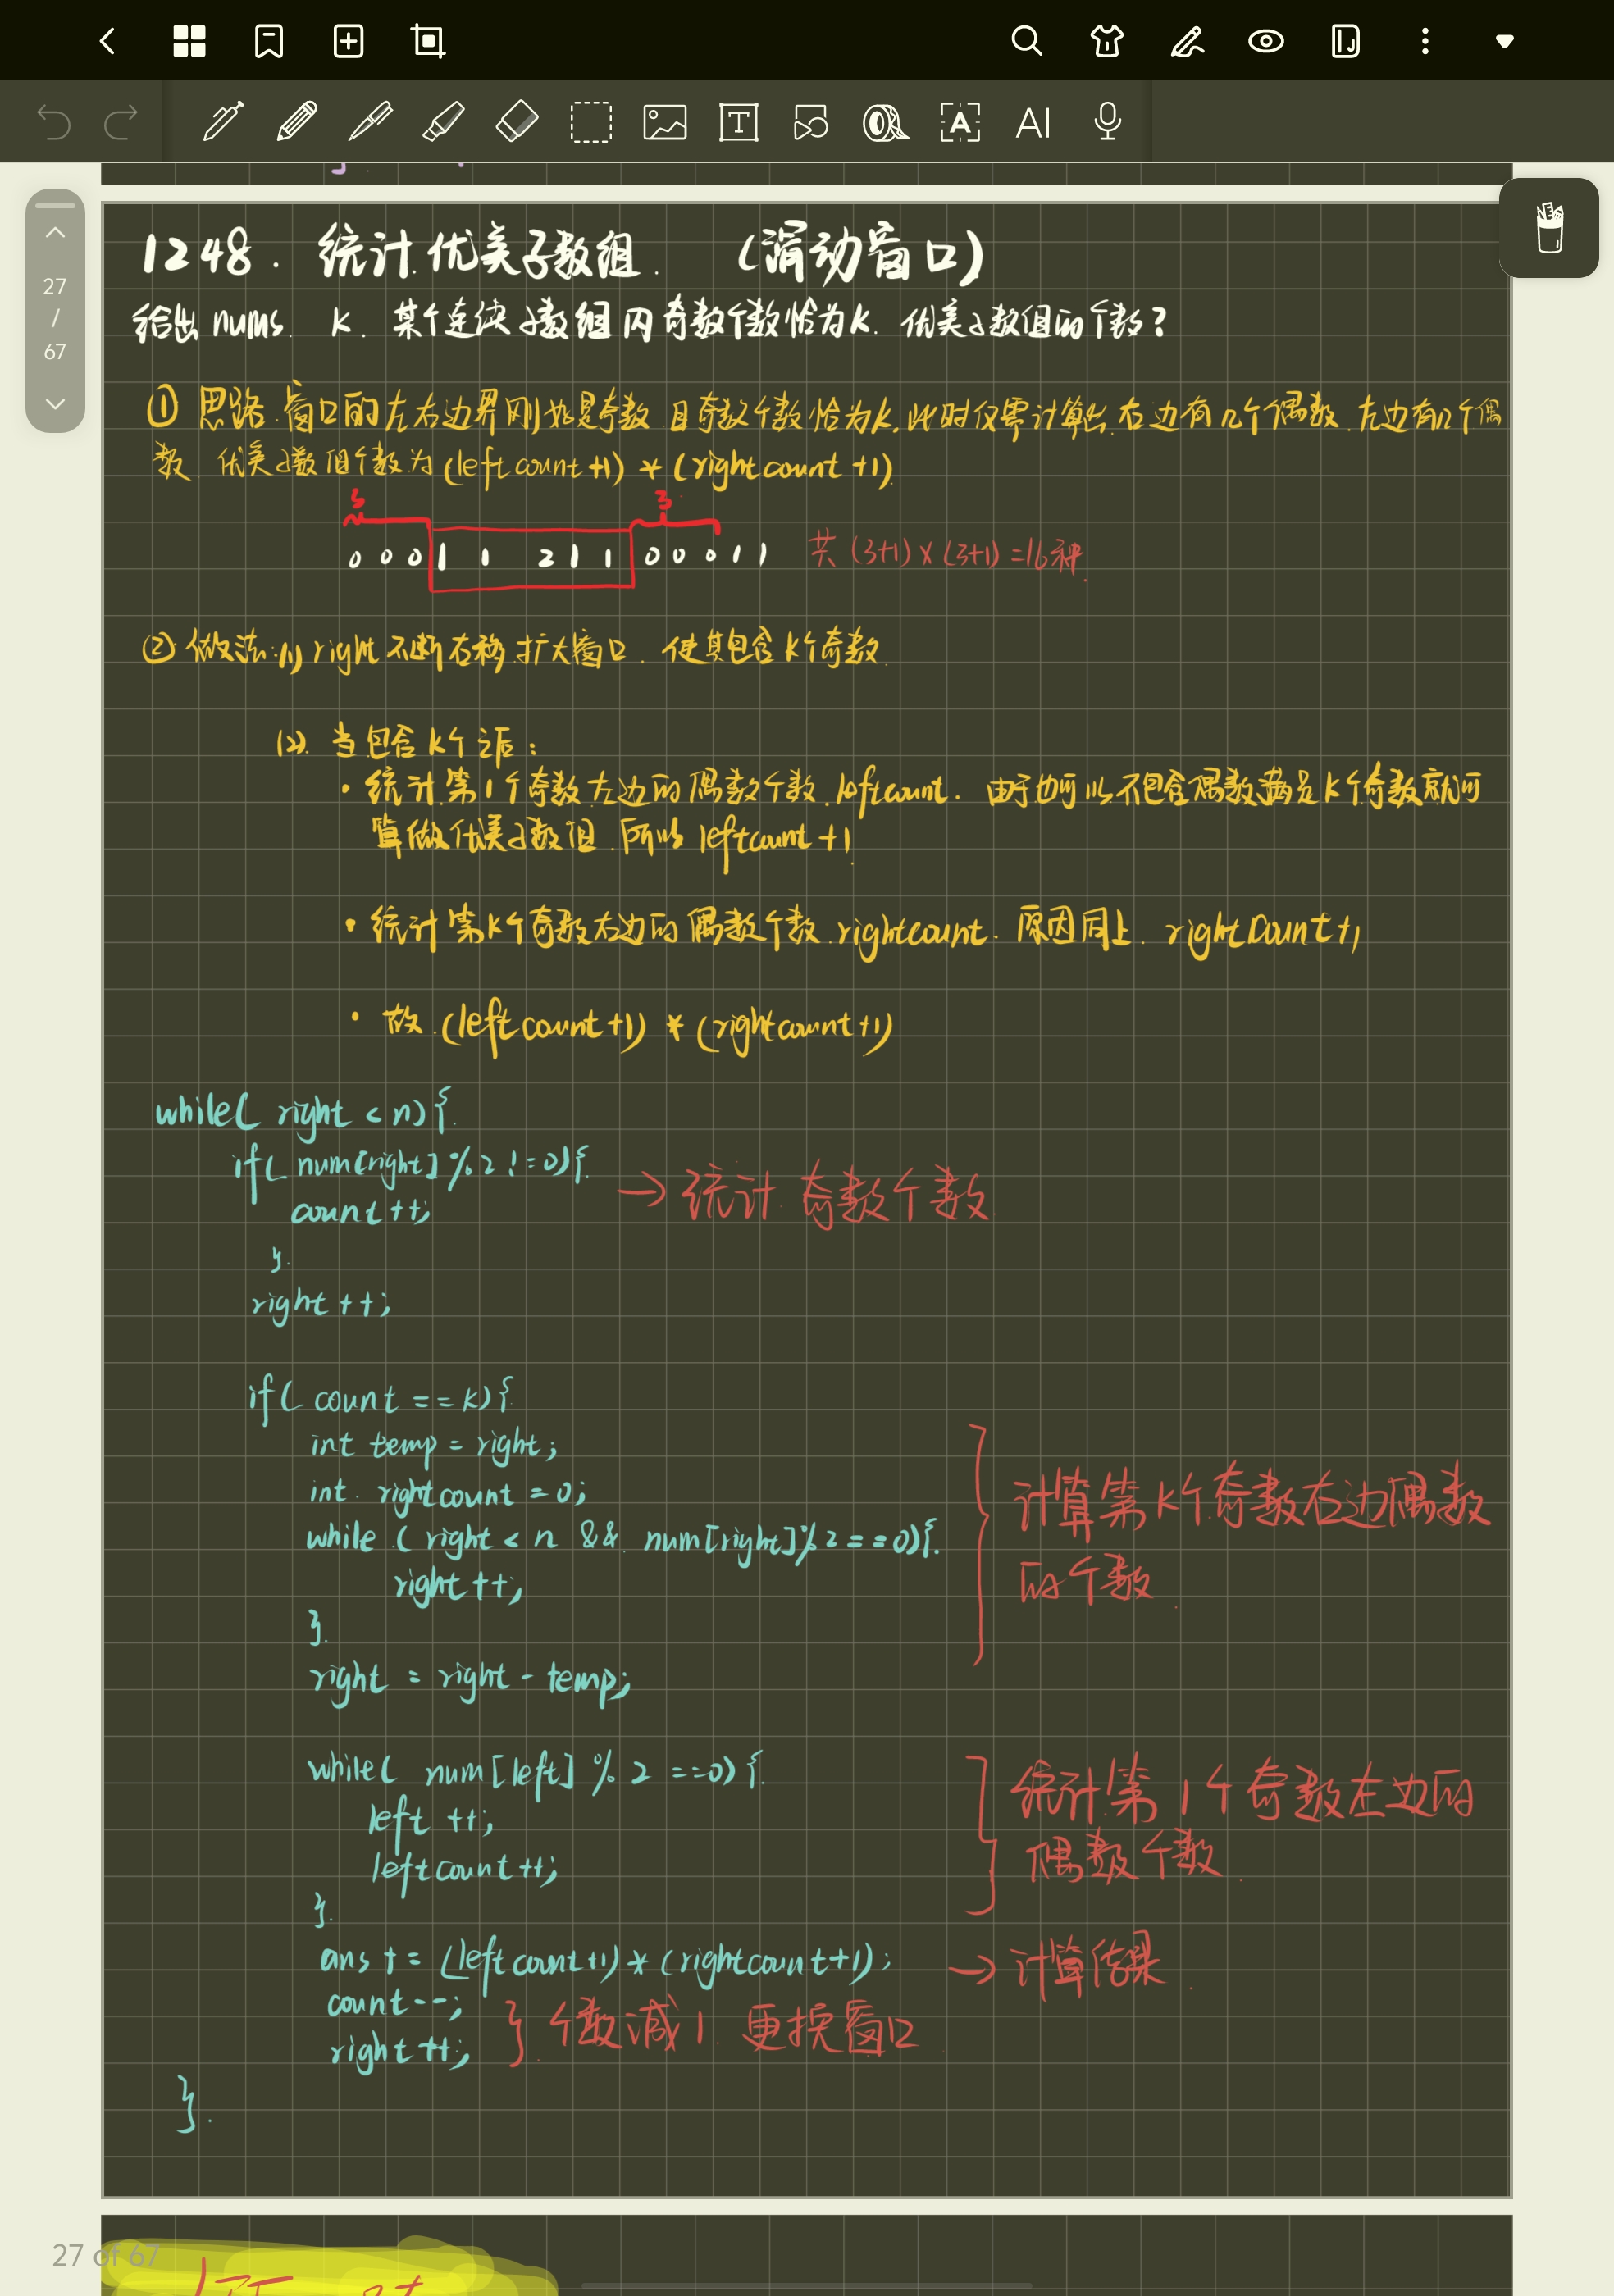 27
/
67
1248. 统计优美子数组. (滑动窗口)
给出 nums. k. 某个连续子数组内奇数个数恰为k. 优美子数组的个数?
① 思路. 窗口的左右边界刚好是奇数 且奇数个数恰为k. 此时仅需计算出 右边有几个偶数. 左边有几个偶
数. 优美子数组个数为 (leftcount+1) * (rightcount+1).
3 3
0 0 0 1 1 2 1 1 0 0 0 1 1 共 (3+1) × (3+1) = 16种.
② 做法: (1) right 不断右移. 扩大窗口. 使其包含k个奇数.
(2). 当包含k个之后:
· 统计第1个奇数左边的偶数个数. leftcount. 由于也可以不包含偶数满足k个奇数就可
算做优美子数组. 所以 leftcount+1.
· 统计第k个奇数右边的偶数个数. rightcount. 原因同上. rightcount+1
· 故. (leftcount+1) * (rightcount+1)
while( right < n) {
if( num[right] % 2 != 0) { → 统计 奇数个数
count++;
}
right++;
if( count == k) {
int temp = right;
int rightcount = 0; 计算第k个奇数右边偶数
while ( right < n && num[right] % 2 == 0) {
right++; 的个数
}
right = right - temp;
while( num[left] % 2 == 0) { 统计第1个奇数左边的
left ++;
leftcount++; 偶数个数
}
ans += (leftcount+1) * (rightcount+1); → 计算结果
count--;
right++; } 个数减1. 更换窗口
}
27 of 67